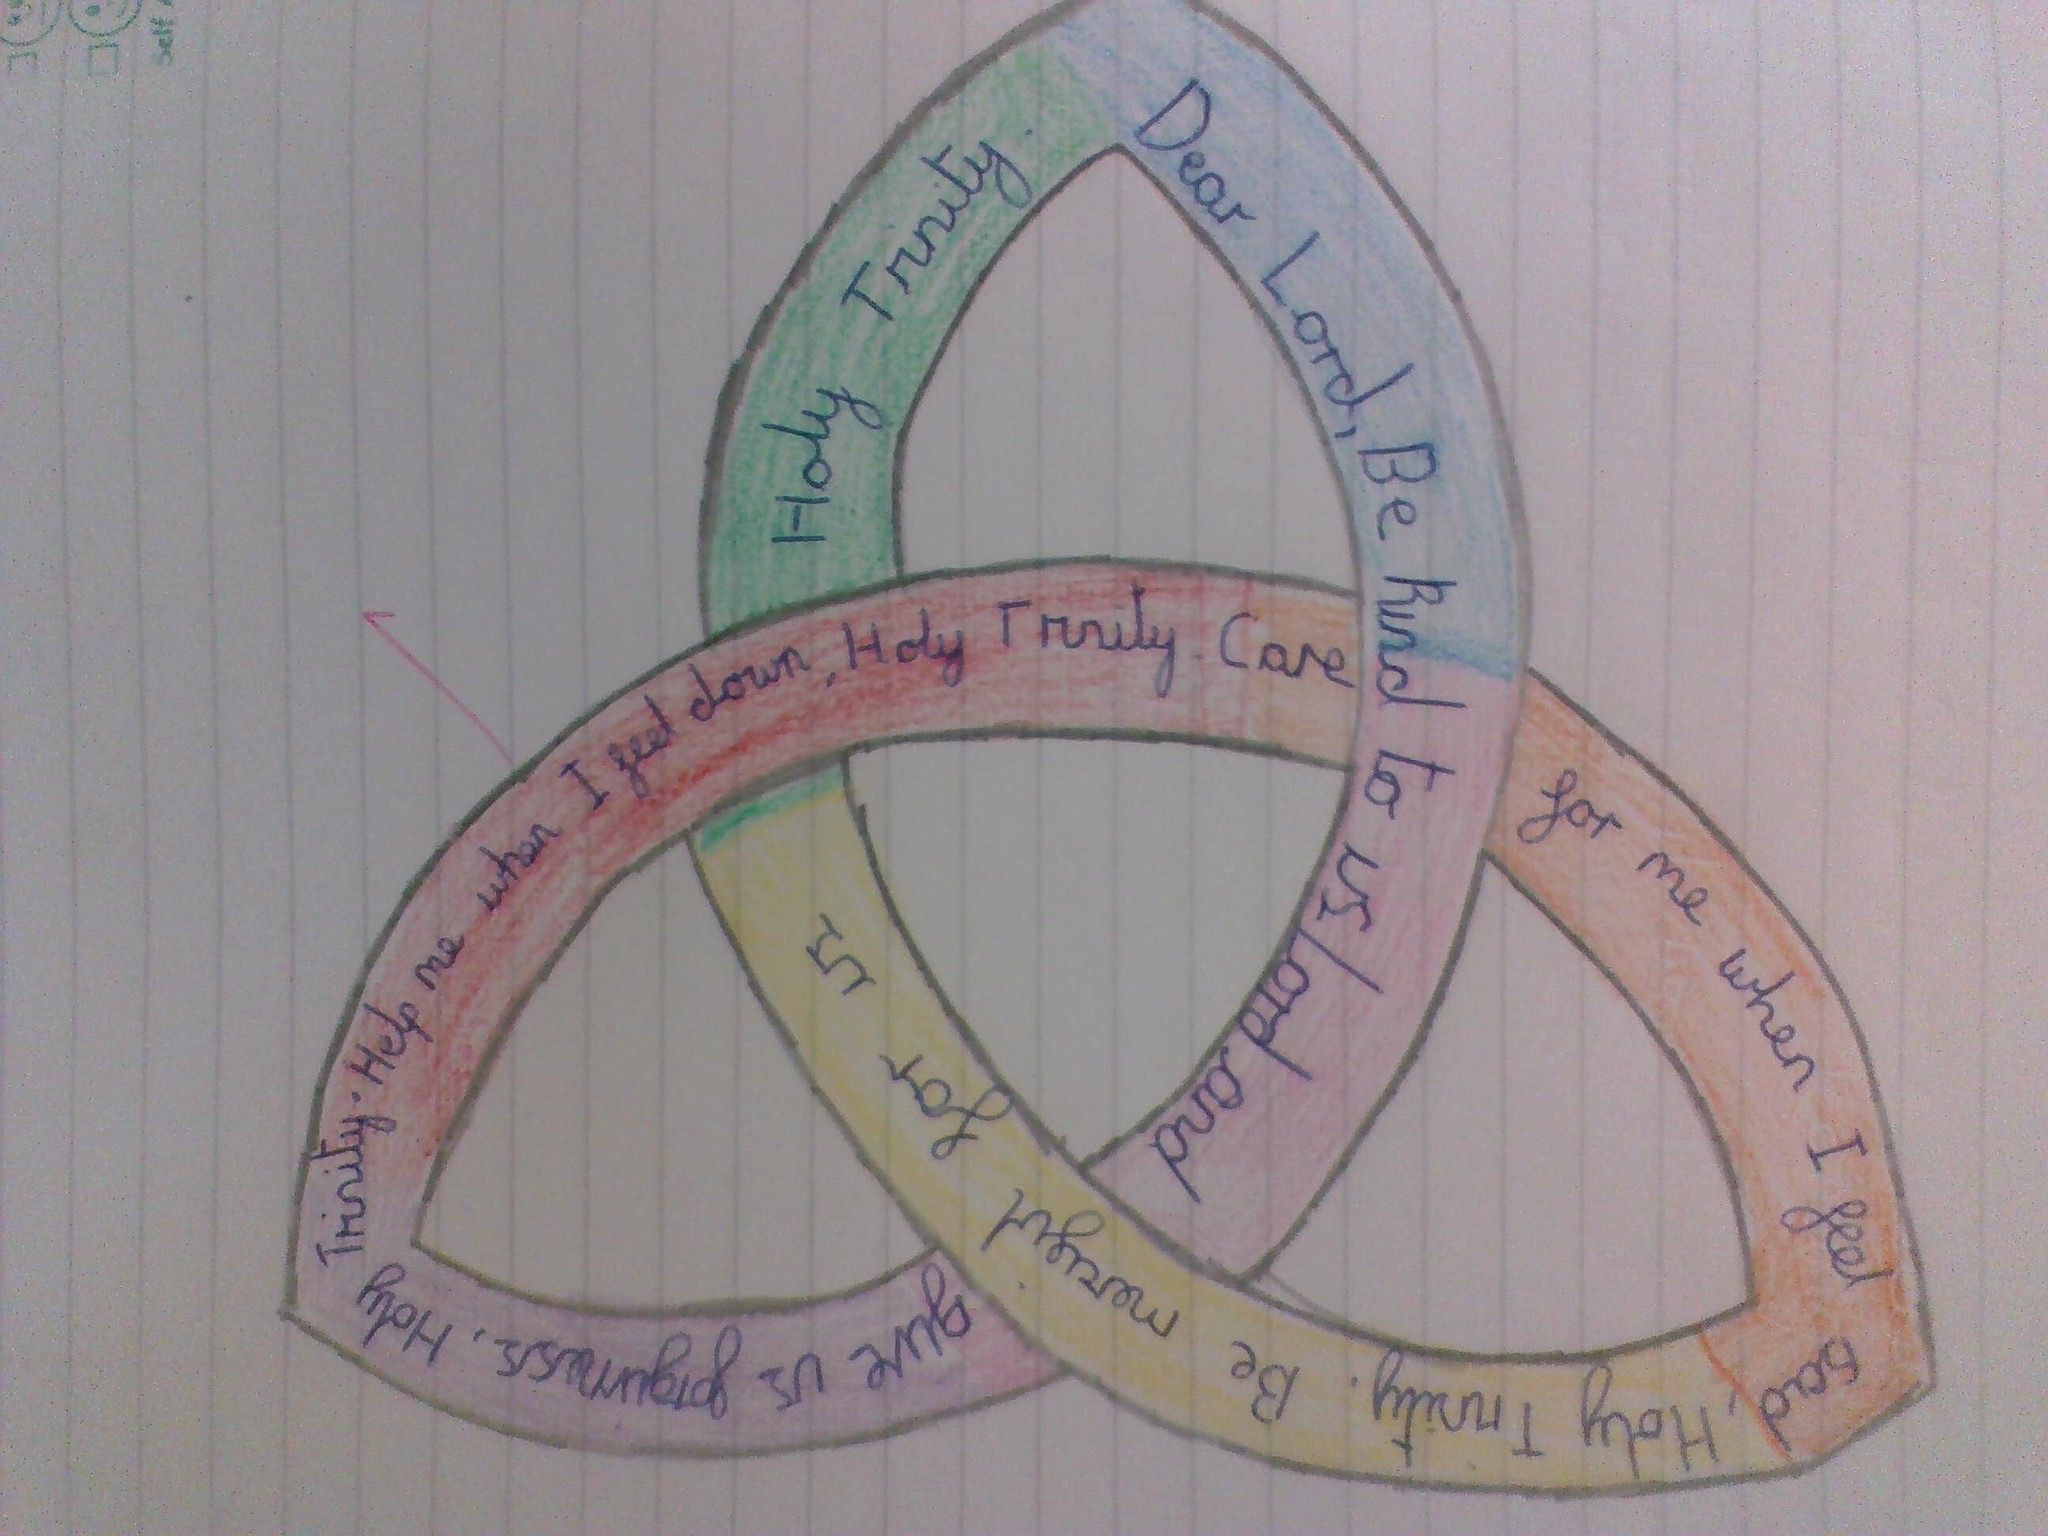 Dear Lord, Be kind to us Lord and
give us forgivness, Holy
Trinity. Help me when I feel down, Holy Trinity. Care
for me when I feel sad, Holy Trinity. Be merciful for us
Holy Trinity.
self